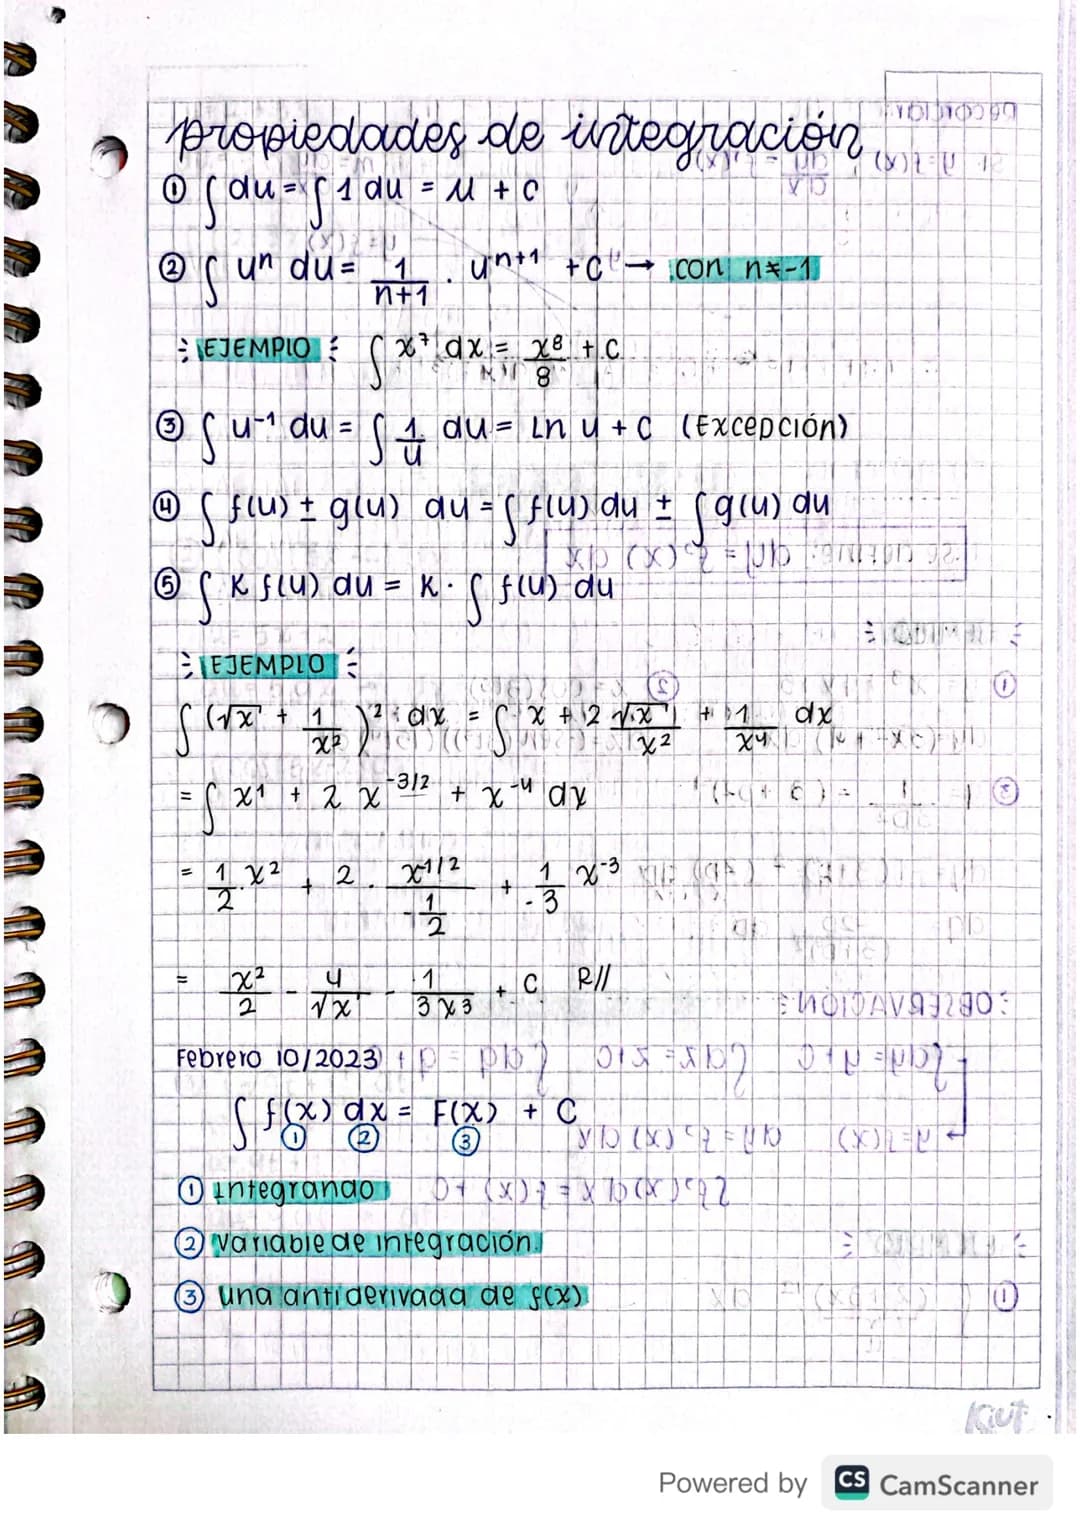 propiedades de integración
① ∫ du = ∫ 1 du = u + c
② ∫ uⁿ du = 1/(n+1) · uⁿ⁺¹ + c → con n≠-1
EJEMPLO ∫ x⁷ dx = x⁸/8 + c
③ ∫ u⁻¹ du = ∫ 1/u du = Ln u + c (Excepción)
④ ∫ f(u) ± g(u) du = ∫ f(u) du ± ∫ g(u) du
⑤ ∫ K f(u) du = K · ∫ f(u) du
EJEMPLO
∫ (√x + 1/x²)² dx = ∫ x + 2 √x/x² + 1/x⁴ dx
= ∫ x¹ + 2 x^(-3/2) + x⁻⁴ dx
= 1/2 · x² + 2 · x^(1/2)/(-1/2) + 1/-3 x⁻³
= x²/2 - 4/√x - 1/(3x³) + C R//
Febrero 10/2023
∫ f(x) dx = F(x) + C
① ② ③
① Integrando
② Variable de integración.
③ una antiderivada de f(x)
Kiut
Powered by CS CamScanner